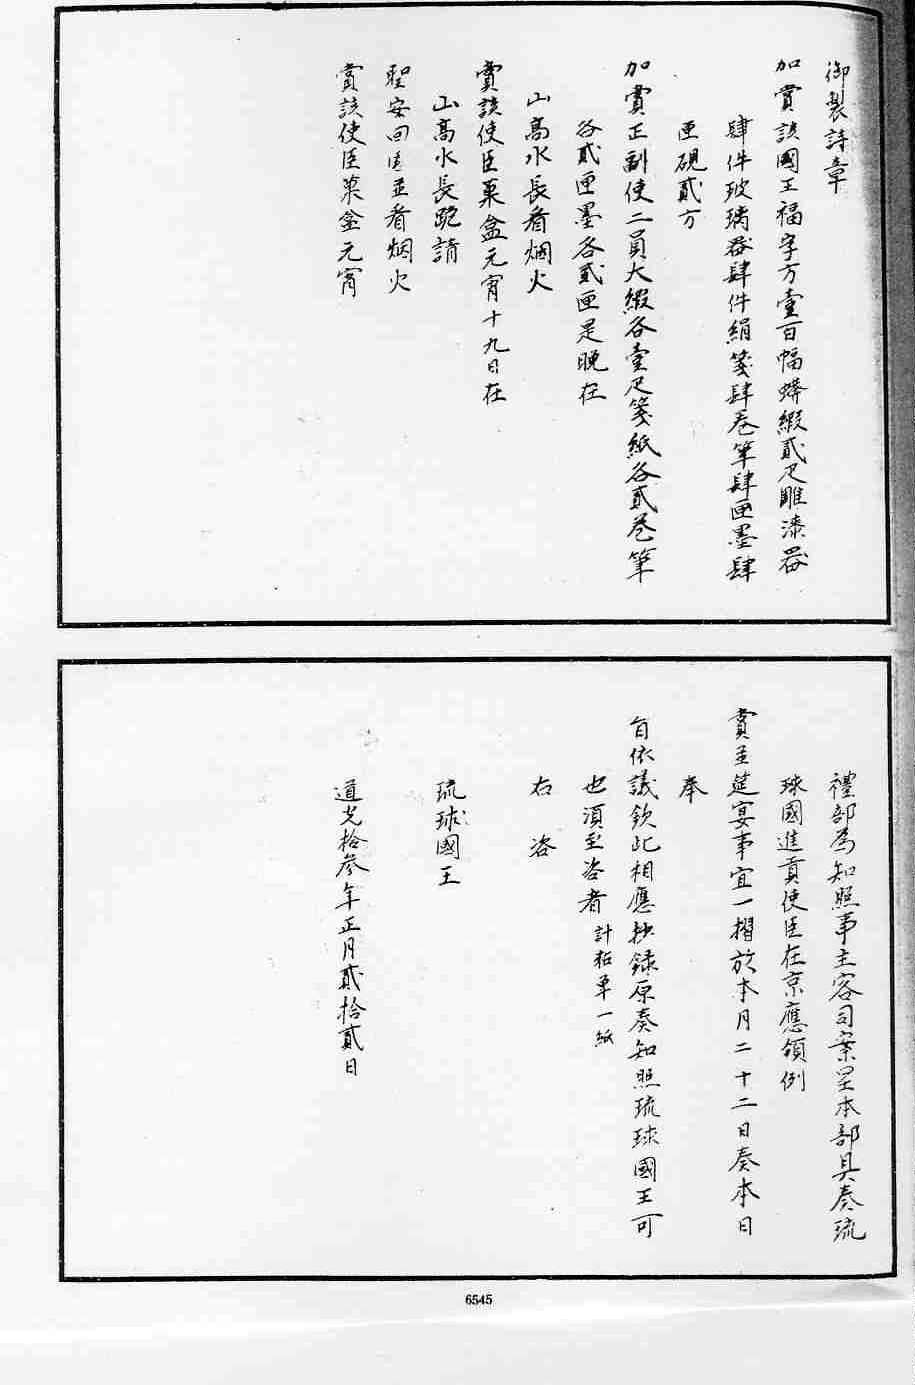 御製詩章
加賞該國王福字方壹百幅蟒緞貳疋雕漆器
肆件玻璃器肆件絹箋肆卷筆肆匣墨肆
匣硯貳方
加賞正副使二員大緞各壹疋箋紙各貳卷筆
各貳匣墨各貳匣是晚在
山高水長看烟火
賞該使臣菓盒元宵十九日在
山高水長跪請
聖安回
並看烟火
賞該使臣菓盒元宵
禮部為知照事主客司案呈本部具奏琉
球國進貢使臣在京應領例
賞並筵宴事宜一摺於本月二十二日奏本日
奉
旨依議欽此相應抄錄原奏知照琉球國王可
也須至咨者 計粘單一紙
右咨
琉球國王
道光拾叁年正月貳拾貳日
6545